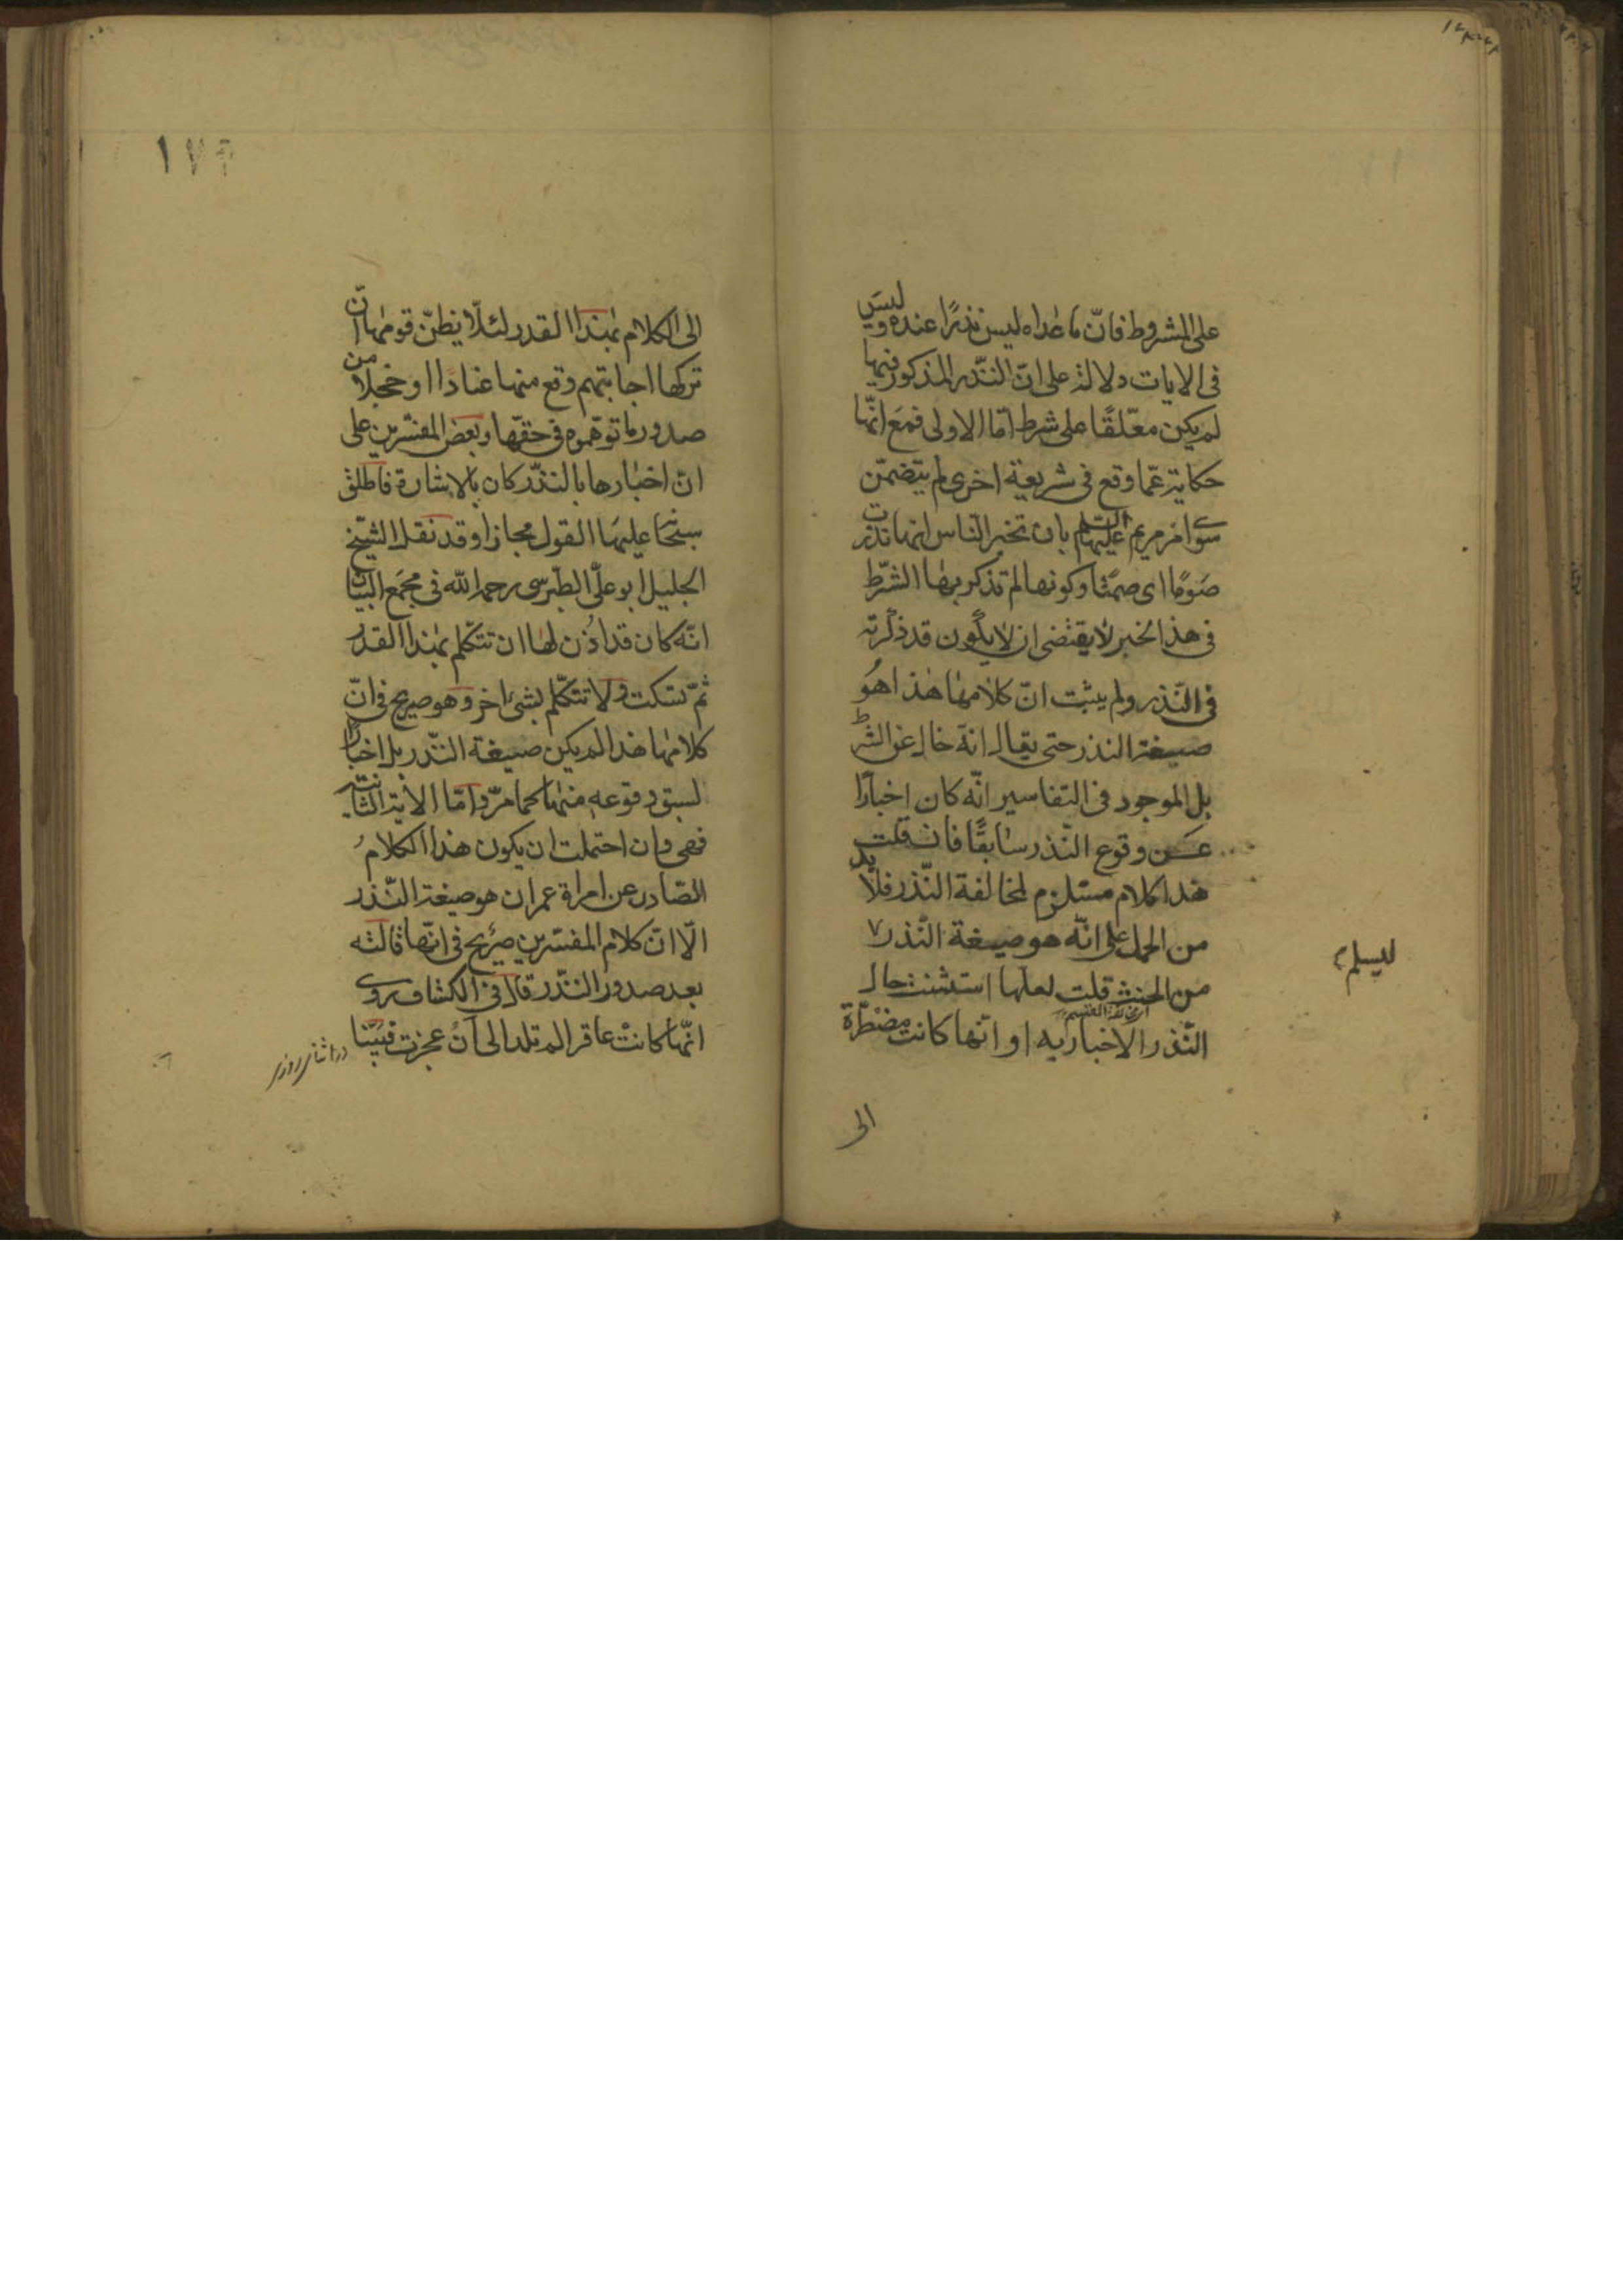 على المشروط فانّ ماعداه ليس نذرًا عنده وليس
فى الايات دلالة على انّ النّذر المذكور فيها
لم يكن معّلقًا على شرط امّا الاولى فمع انّها
حكاية عمّا وقع فى شريعة اخرى لم يتضمّن
سوى امر مريم عليها السلم بان تخبر النّاس انها نذرت
صَومًا اى صمتًا وكونها لم تذكر بها الشّرط
فى هذا الخبر لا يقتضى ان لا يكون قد ذكرته
فى النّذر ولم يثبت انّ كلامها هذا هُو
صيغة النذر حتى يقال انه خال عن الشرط
بل الموجود فى التفاسير انّه كان اخبارًا
عن وقوع النّذر سابقًا فان قلت
هذا كلام مستلزم لمخالفة النّذر فلا بد
من الحمل على انّه هو صيغة النّذر
ليسلم
من الحنث قلت لعلها استثنت حال
النّذر الاخبار به او انّها كانت مضطّرة
الى
١٧٦
الى الكلام بهذا القدر لئلّا يظنّ قومها انّ
تركها اجابتهم وقع منها عنادًا او خجلا من
صدور ما توهّموه فى حقّها وبعض المفسّرين على
انّ اخبارها بالنّذر كان بالاشارة فاطلق
سبحا عليها القول مجازا وقد نقل الشّيخ
الجليل ابو علّى الطّبرسى رحمه الله فى مجمَع البيان
انّه كان قد اُذن لها ان تتكّلم بهذا القدر
ثمّ تسكت ولا تتكّلم بشئ اخر وهو صريح فى انّ
كلامها هذا لم يكن صيغة النّذر بل اخبارًا
لسبق وقوعه منها كما مرّ وامّا الاية الثانية
فهى وان احتملت ان يكون هذا الكلامُ
الصّادر عن امراة عمران هو صيغة النّذر
الّا انّ كلام المفسّرين صريح فى انّها قالته
بعد صدور النّذر قال فى الكشاف روى
انّها كانتْ عاقرا لم تلد الى اَنْ عجزت فبَيْنا